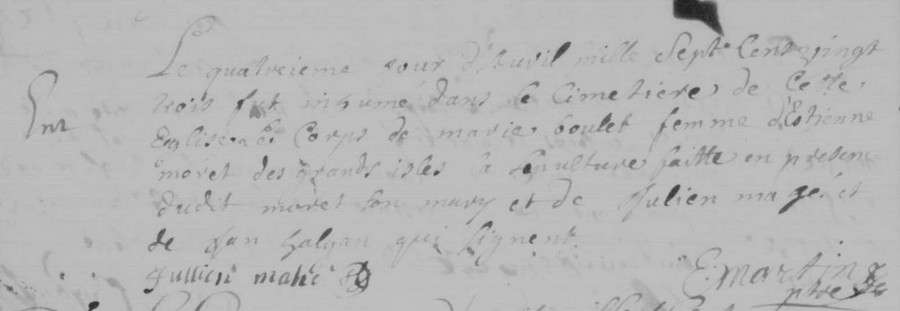 Le quatreieme jour d'Avril mille Sept Cents vingt
Ent
trois fut inhumé dans le Cimetiere de Cette
Eglise le Corps de marie boulet femme d'Estienne
moret des grands isles la sepulture faitte en presence
dudit moret son mary et de Julien mahé et
de Jan qui signent
Jullien mahé
E. Martin
ptre